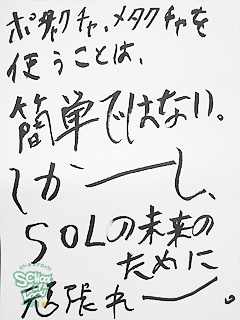 ポタクチャ、メタクチャを
使うことは、
簡単ではない。
しかーーし、
SOLの未来の
ために
頑張れーー。
SCHOOL
OF
LOCK!